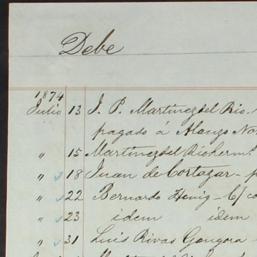 Debe
1874
Julio 13 J. P. Martinez del Rio.
pagado á Alonzo No
" 15 Martinez del Rio herm
" 18 Juan de Cortazar - p
" 22 Bernardo Henig - C/ co
" 23 idem idem
" 31 Luis Rivas Gongora -